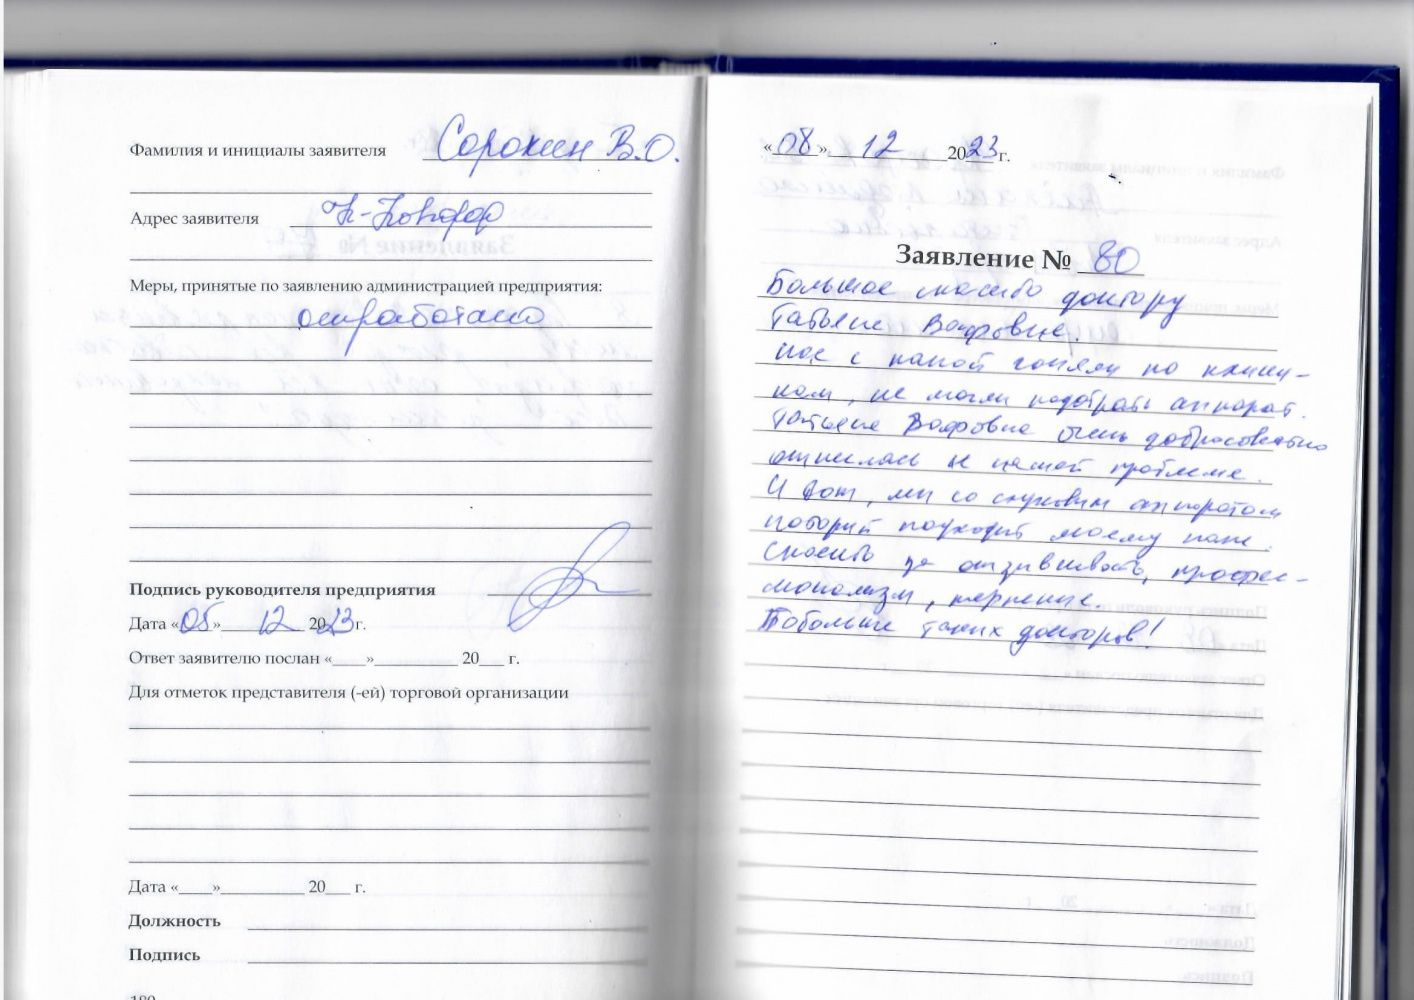 Фамилия и инициалы заявителя Сорокин В.О.
Адрес заявителя Н-Новгород
Меры, принятые по заявлению администрацией предприятия:
отработано
Подпись руководителя предприятия
Дата «05» 12 2023 г.
Ответ заявителю послан «___»_________ 20___ г.
Для отметок представителя (-ей) торговой организации
Дата «___»_________ 20___ г.
Должность
Подпись
180
«08» 12 2023 г.
Заявление № 80
Большое спасибо доктору
Татьяне
Нас с папой гоняли по клини-
кам, не могли подобрать аппарат.
Татьяна очень добросовестно
отнеслась к нашей проблеме.
И вот, мы со слуховым аппаратом
который подходит моему папе.
Спасибо за отзывчивость, професс-
ионализм, терпение.
Побольше таких докторов!